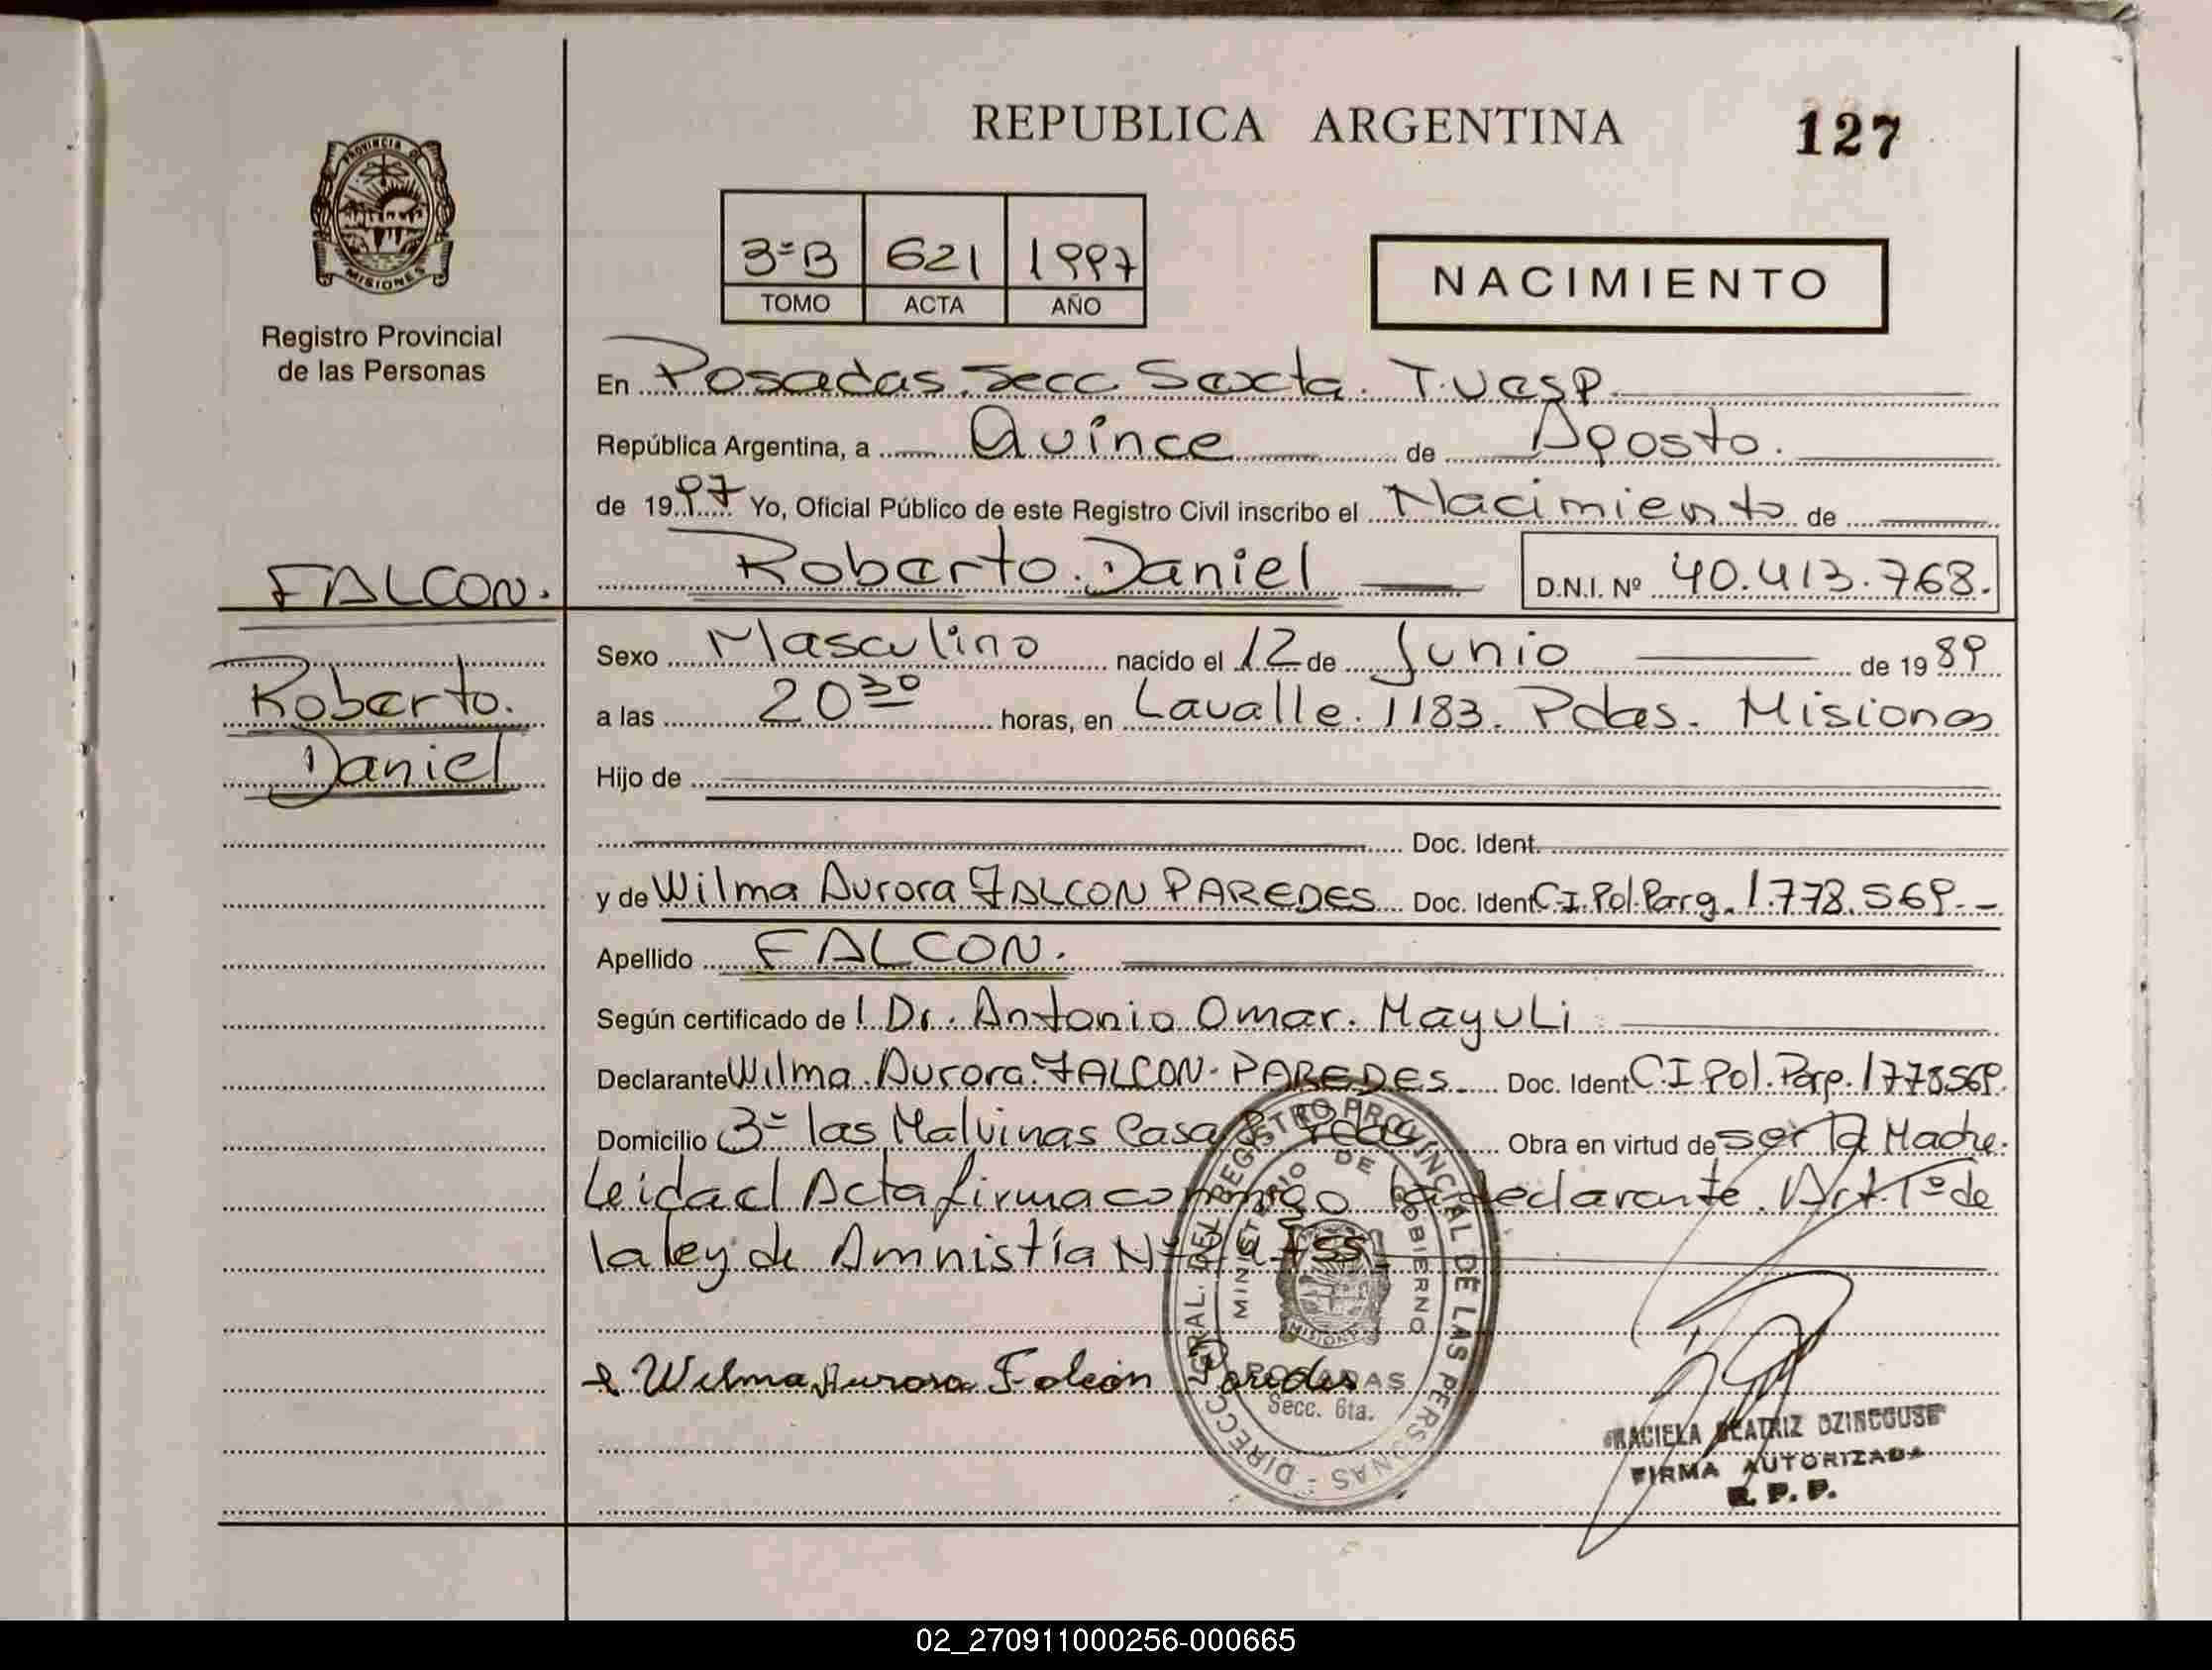 REPUBLICA ARGENTINA
127
PROVINCIA D
MISIONES
Registro Provincial
de las Personas
3ªB 621 1997
TOMO ACTA AÑO
NACIMIENTO
En Posadas. Secc. Sexta.
República Argentina, a Quince de Agosto.
de 1997 Yo, Oficial Público de este Registro Civil inscribo el Nacimiento de
FALCON.
Roberto. Daniel D.N.I. Nº 40.413.768.
Roberto.
Daniel
Sexo Masculino nacido el 12 de Junio de 1989
a las 20 30 horas, en Lavalle. 1183. Pdas. Misiones
Hijo de
Doc. Ident.
y de Wilma Aurora FALCON PAREDES Doc. Ident C.I. Pol. Parg. 1.778.569.-
Apellido FALCON.
Según certificado de l Dr. Antonio Omar. Mayuli
Declarante Wilma. Aurora. FALCON. PAREDES Doc. Ident C.I Pol. Parg. 1778569.
Domicilio 3ª las Malvinas Casa Obra en virtud de ser la Madre.
Leida el Acta firma conmigo la declarante. Art. 1º de
la ley de Amnistía Nº
Wilma Aurora Falcón Paredes
DIRECC. GRAL. DEL REGISTRO PROVINCIAL DE LAS PERSONAS
MINISTERIO DE GOBIERNO
MISIONES
POSADAS
Secc. 6ta.
GRACIELA BEATRIZ
FIRMA AUTORIZADA
R. P. P.
02_270911000256-000665